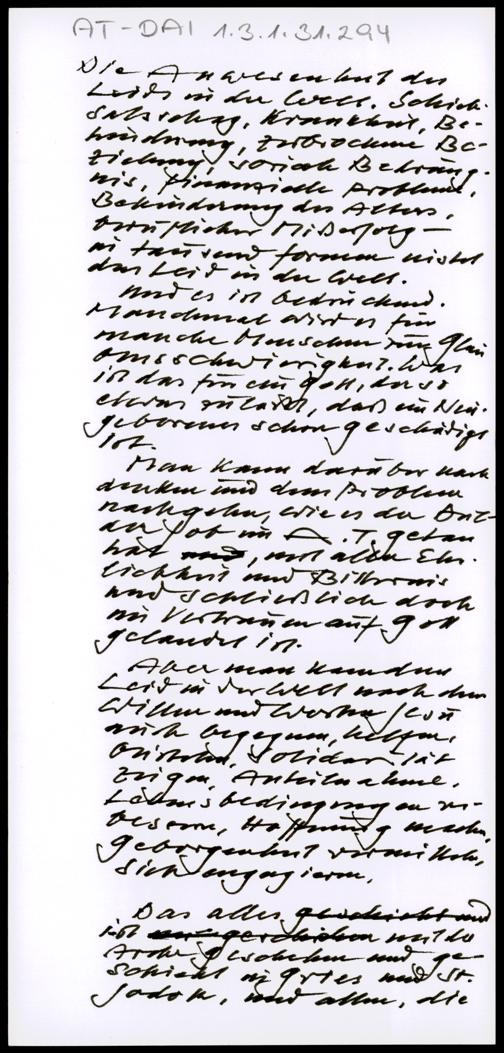 AT-DAI 1.3.1.31.294
Die Anwesenheit des
Leids in der Welt. Schick-
salsschlag, Krankheit, Be-
hinderung, zerbrochene Be-
ziehung, soziale Bedräng-
nis, finanzielle Probleme,
Behinderung des Alters,
beruflicher Mißerfolg –
in tausend Formen nistet
das Leid in der Welt.
Und es ist bedrückend.
Manchmal wird es für
manche Menschen zur Glau
bensschwierigkeit. Was
ist das für ein Gott, der so
etwas zuläßt, daß ein Neu-
geborenes schon geschädigt
ist.
Man kann darüber nach
denken und dem Problem
nachgehen, wie es der Dul-
der Job im A.T. getan
hat und, mit aller Ehr-
lichkeit und Bitternis
und schließlich doch
im Vertrauen auf Gott
gelandet ist.
Aber man kann dem
Leid in der Welt nach dem
Willen und Worten Jesu
auch begegnen, helfen,
beistehen, Solidarität
zeigen, Anteilnahme,
Lebensbedingungen ver-
bessern, Hoffnung machen,
Geborgenheit vermitteln,
sich engagieren.
Das alles geschieht und
ist ausgeschieden mit der
Arche geschehen und ge-
schieht in Gries und St.
Jodok, und allen, die